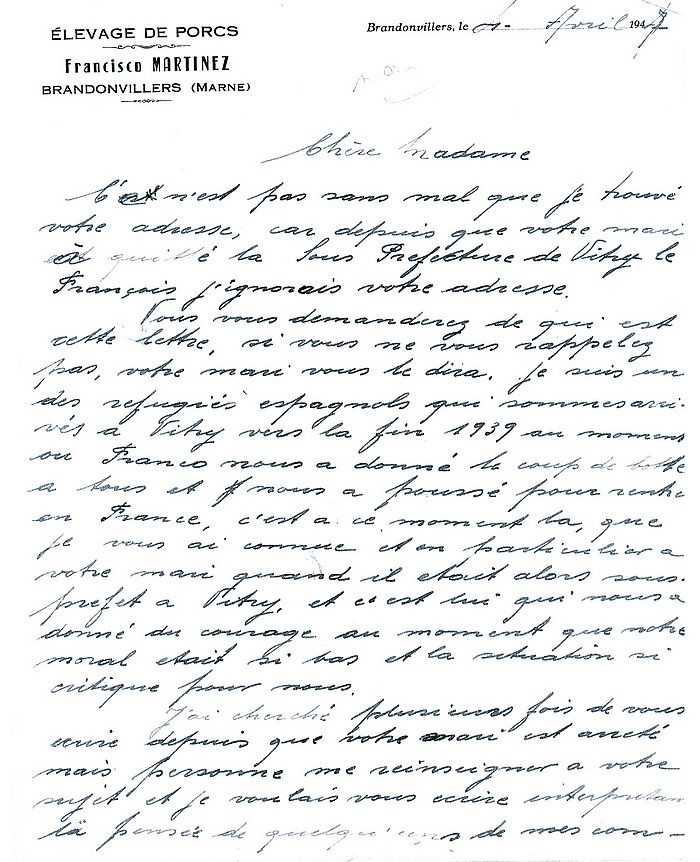 ÉLEVAGE DE PORCS
Francisco MARTINEZ
BRANDONVILLERS (MARNE)
Brandonvillers, le Avril 1947
non
Chère Madame
C'est n'est pas sans mal que je trouvé
votre adresse, car depuis que votre mari
quitté la Sous Prefecture de Vitry le
François j'ignorais votre adresse.
Vous vous demanderez de qui est
cette lettre, si vous ne vous rappelez
pas, votre mari vous le dira. Je suis un
des refugiés espagnols qui sommes arri-
vés a Vitry vers la fin 1939 au moment
ou Franco nous a donné le coup de botte
a tous et nous a poussé pour rentre
en France, c'est a ce moment la, que
je vous ai connue et en particulier a
votre mari quand il etait alors sous-
prefet a Vitry, et c'est lui qui nous a
donné du courage au moment que notre
moral etait si bas et la situation si
critique pour nous.
J'ai cherché plusieurs fois de vous
ecrire depuis que votre mari est arreté
mais personne me reinseigner a votre
sujet et je voulais vous ecrire interpretan
la pensée de quelqu'uns de mes com-